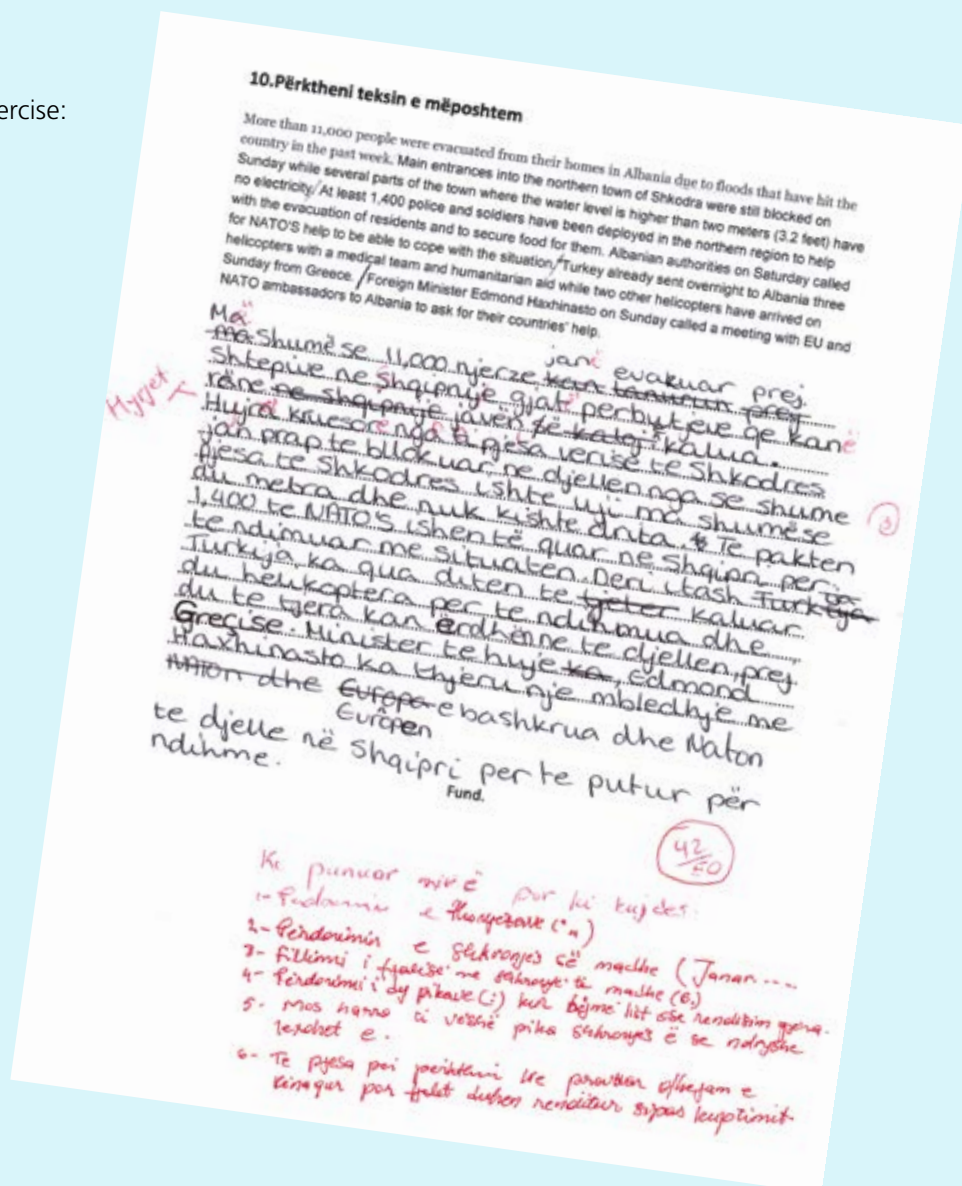 ercise:
10.Përktheni teksin e mëposhtem
More than 11,000 people were evacuated from their homes in Albania due to floods that have hit the
country in the past week. Main entrances into the northern town of Shkodra were still blocked on
Sunday while several parts of the town where the water level is higher than two meters (3.2 feet) have
no electricity/At least 1,400 police and soldiers have been deployed in the northern region to help
with the evacuation of residents and to secure food for them. Albanian authorities on Saturday called
for NATO'S help to be able to cope with the situation/Turkey already sent overnight to Albania three
helicopters with a medical team and humanitarian aid while two other helicopters have arrived on
Sunday from Greece. /Foreign Minister Edmond Haxhinasto on Sunday called a meeting with EU and
NATO ambassadors to Albania to ask for their countries' help.
Më
ma shumë se 11,000 njerze kan janë evakuar prej
shtepive ne Shqipnije gjatë perbytjeve qe kanë
rëne ne shqipnije javën e kalua.
Hyrjet
Hujra kruesore nga pjesa verise te Shkodres
jan prap te bllokuar ne djellen nga se shume
pjesa te Shkodres ishte uji ma shumë se
du metra dhe nuk kishte drita. Te pakten
1,400 te NATO'S ishen të quar ne Shqipri per
te ndimuar me situaten. Deri i tash Turkeja
Turkija, ka qua diten te tjeter kaluar
du helikoptera per te ndihmua dhe
du te tjera kan ërdhën ne te djellen, prej
Greqise. Minister te huje ka, Edmond
Haxhinasto ka thjeru nje mbledhje me
NATOn dhe Europa e bashkrua dhe Naton
Evropen
te djelle në Shqipri per te putur për
ndihme.
Fund.
3
42/50
Ke punuar mirë por ki kujdes:
1- Perdorimin e thonjezave (" „)
2- Përdorimin e shkronjes së madhe (Janar....
3- Fillimi i fjalisë me shkronje të madhe (6.)
4- Përdorimi i dy pikave (:) kur bëjmë list ose renditim gjëra.
5- Mos harro ti veshë pika shkronjes ë se ndryshe
lexohet e.
6- Te pjesa per perkthimi ke
kenaqur por fjalet duhen renditur sipas kuptimit.